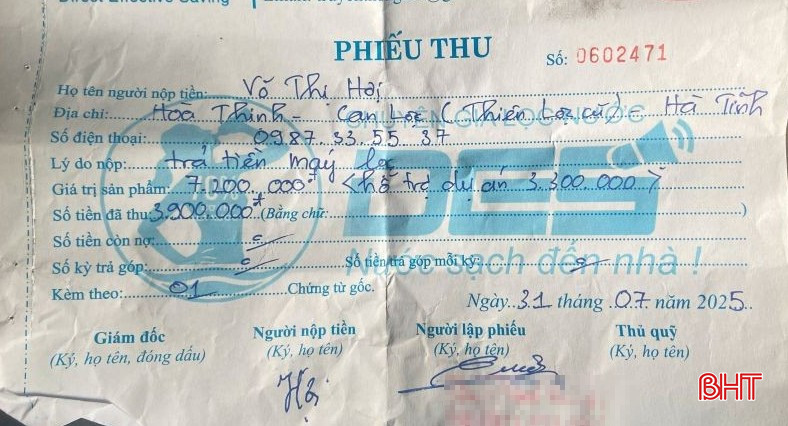 PHIẾU THU
Số: 0602471
Họ tên người nộp tiền: Võ Thị Hợi
Địa chỉ: Hoà Thịnh - Can Lộc (Thiên Lộc cũ) Hà Tĩnh
CHUYÊN GIA LỌC NƯỚC
Số điện thoại: 0987.33.55.37
Lý do nộp: trả tiền máy lọc
Giá trị sản phẩm: 7.200.000đ <hỗ trợ dự án 3.300.000>
DES
Số tiền đã thu: 3.900.000đ (Bằng chữ: )
Số tiền còn nợ:
Số kỳ trả góp: Số tiền trả góp mỗi kỳ:
Nước sạch đến nhà !
Kèm theo: 01 Chứng từ gốc.
Ngày 31 tháng 07 năm 2025
Giám đốc Người nộp tiền Người lập phiếu Thủ quỹ
(Ký, họ tên, đóng dấu) (Ký, họ tên) (Ký, họ tên) (Ký, họ tên)
BHT